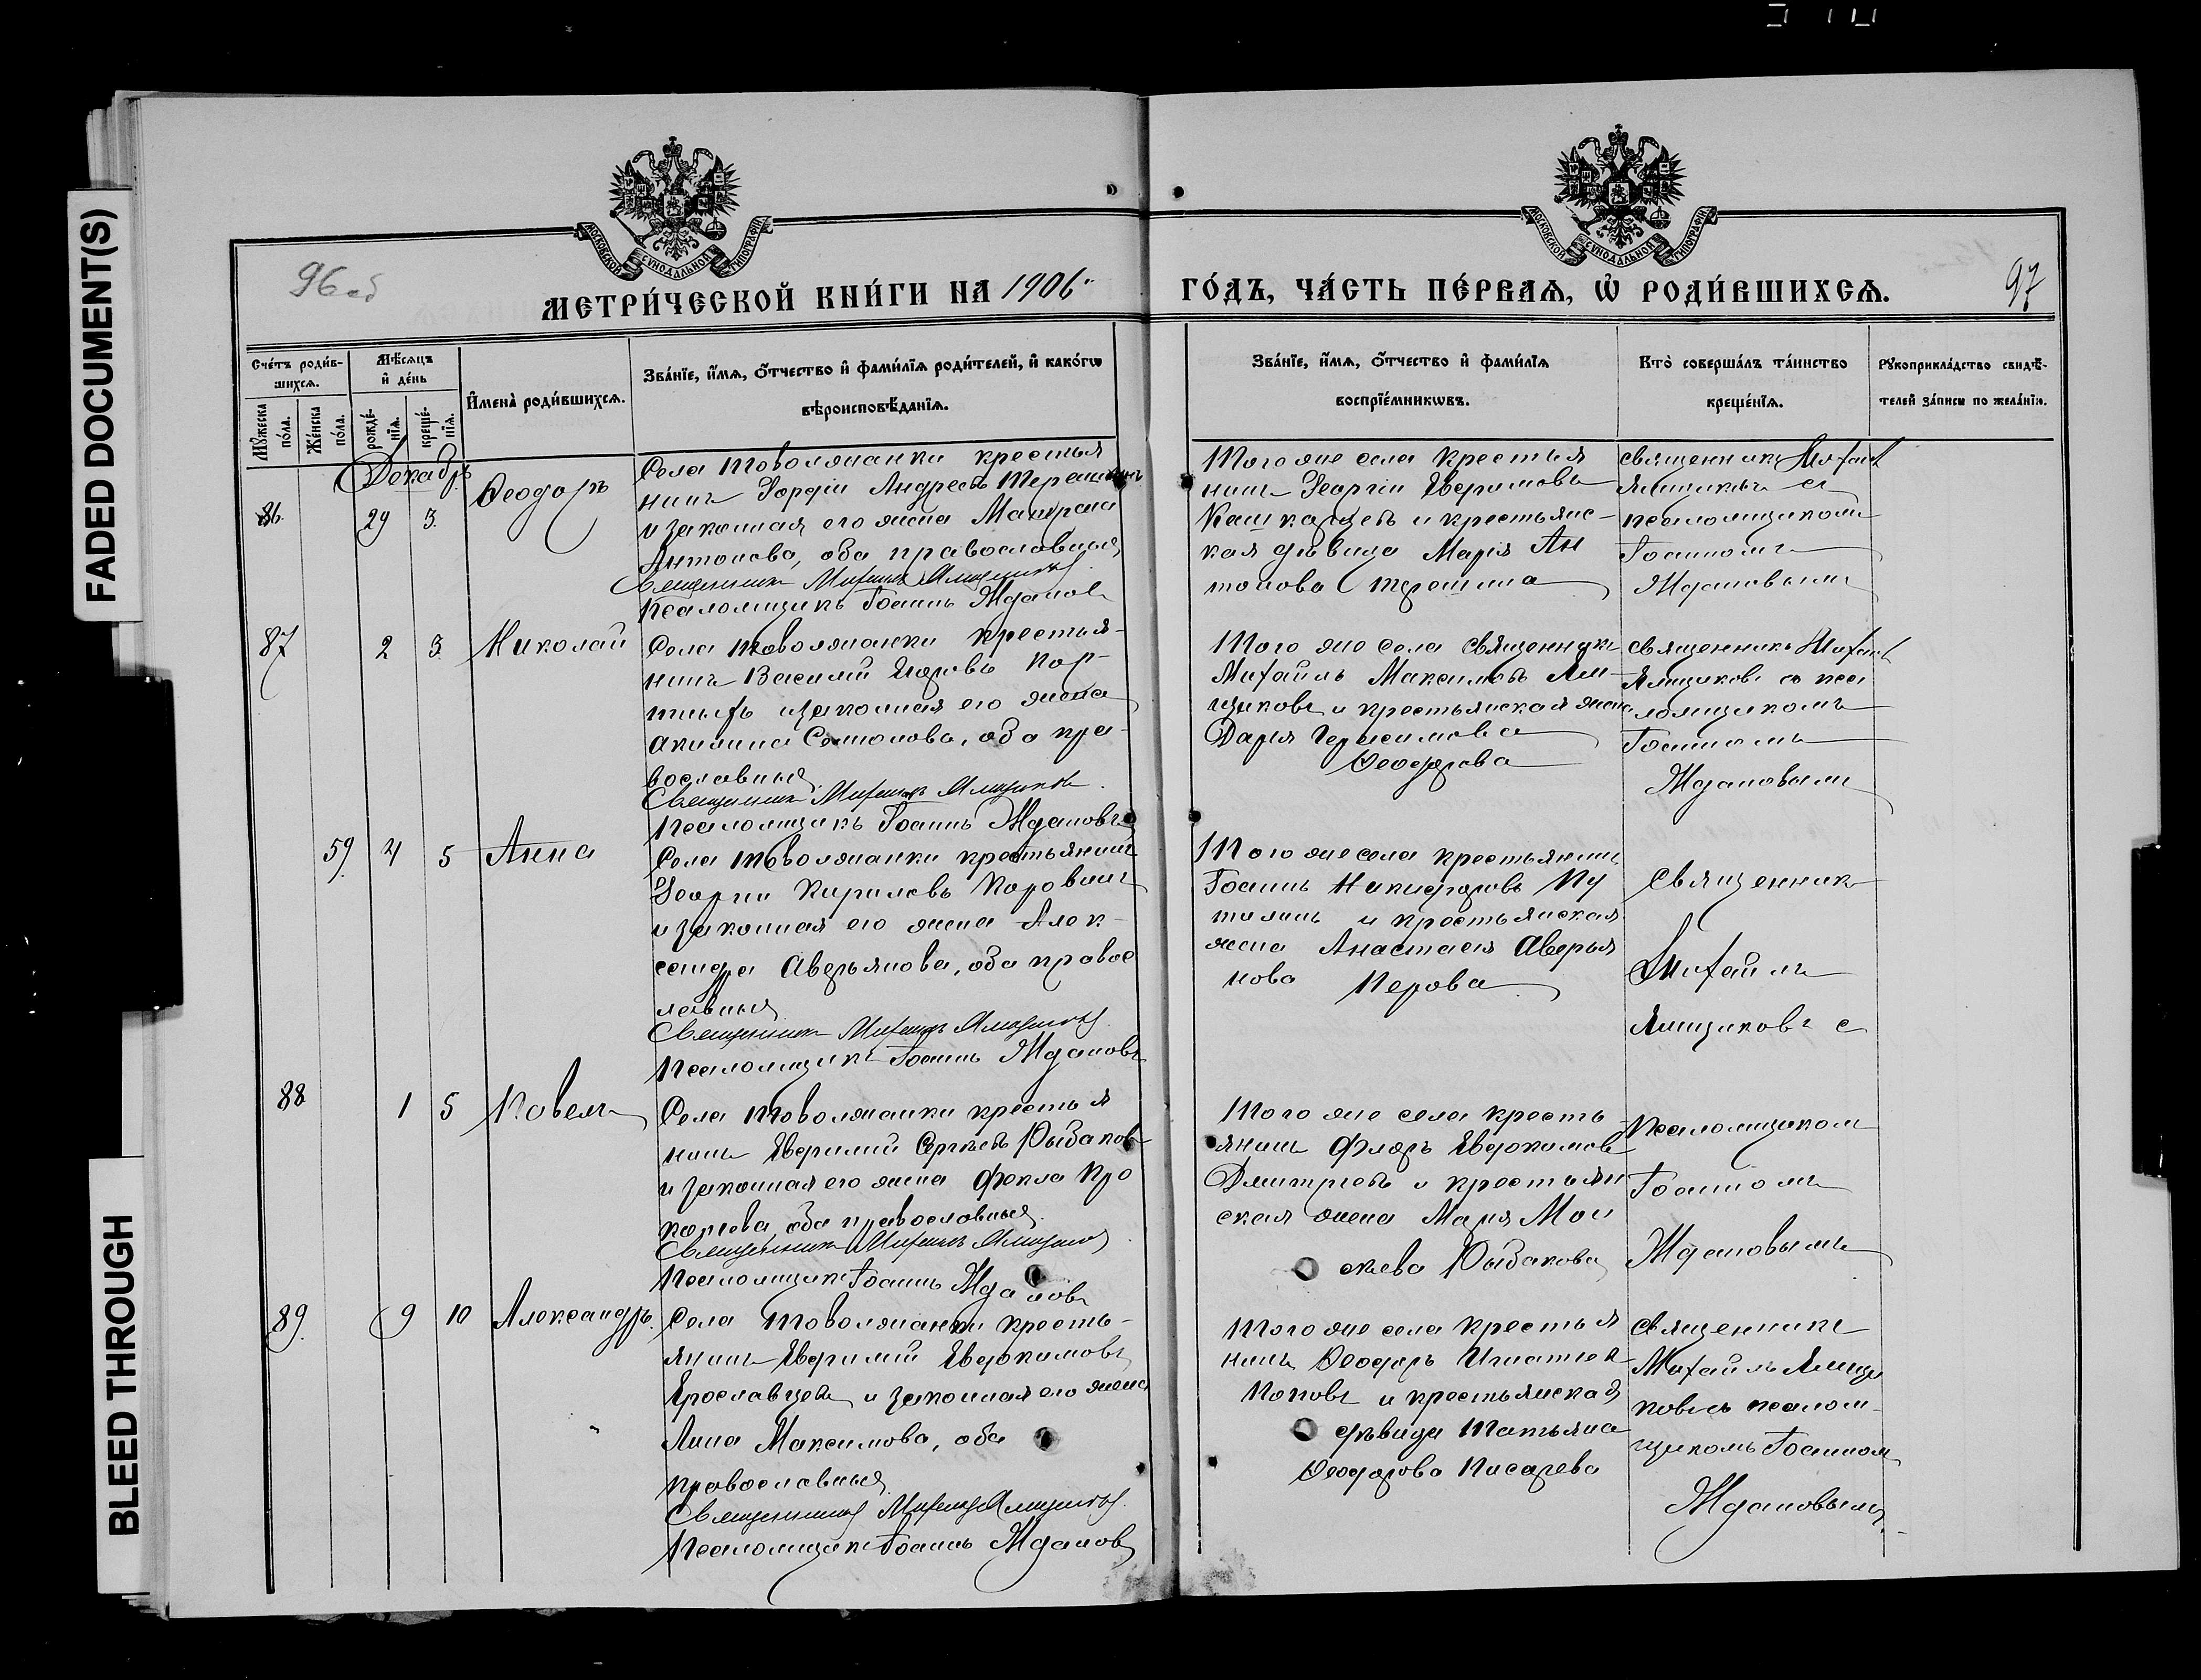 FADED DOCUMENT(S)
BLEED THROUGH
96 об
97
МОСКОВСКОЙ СѴНОДАЛЬНОЙ ТИПОГРАФІИ
МОСКОВСКОЙ СѴНОДАЛЬНОЙ ТИПОГРАФІИ
МЕТРИ́ЧЕСКОЙ КНИ́ГИ НА 1906 ГО́ДЪ, ЧА́СТЬ ПЕ́РВАѦ, Ѡ҆ РОДИ́ВШИХСѦ.
Сче́тъ роди́в-
шихсѧ.
Мꙋ́жеска по́ла.
Же́нска по́ла.
Мѣ́сѧцъ
и҆ де́нь
рожде́-
нїѧ.
креще́-
нїѧ.
И҆мена̀ роди́вшихсѧ.
Зва́нїе, и҆́мѧ, ѻ҆́тчество и҆ фами́лїѧ роди́телей, и҆ како́гѡ
вѣроисповѣ́данїѧ.
Зва́нїе, и҆́мѧ, ѻ҆́тчество и҆ фами́лїѧ
воспрїе́мникѡвъ.
Кто̀ соверша́лъ та́инство
креще́нїѧ.
Рꙋкоприкла́дство свидѣ́-
телей за́писи по жела́нїю.
Декабрь
86.
29 3.
Ѳеодоръ
Села Товолжанки крестья
нинъ Гордій Андреевъ Терешинъ
и законная его жена Матрона
Антонова, оба православные
Священникъ Михаилъ Ямщиковъ
Псаломщикъ Іоаннъ Ждановъ
Того же села крестья
нинъ Георгій Евфимовъ
Кашкарцевъ и крестьянс-
кая дѣвица Марія Ан
тонова Терешина
священникъ Михаилъ
Ямщиковъ съ
псаломщикомъ
Іоанномъ
Ждановымъ
87
2 3.
Николай
Села Товолжанки крестья-
нинъ Василій Егоровъ Пор-
тныхъ и законная его жена
Акилина Самойлова, оба пра-
вославные
Священникъ Михаилъ Ямщиковъ
Псаломщикъ Іоаннъ Ждановъ
Того же села священникъ
Михаилъ Максимовъ Ям-
щиковъ и крестьянская жена
Дарія Герасимова
Ѳеодорова
священникъ Михаилъ
Ямщиковъ со пса
ломщикомъ
Іоанномъ
Ждановымъ
59
4 5
Анна
Села Товолжанки крестьянинъ
Георгій Кириловъ Коровинъ
и законная его жена Алек-
сандра Аверьянова, оба правос
лавные
Священникъ Михаилъ Ямщиковъ
Псаломщикъ Іоаннъ Ждановъ
Того же села крестьянинъ
Іоаннъ Никифоровъ Пу
тилинъ и крестьянская
жена Анастасія Аверья
нова Перова
священникъ
Михаилъ
Ямщиковъ с
88
1 5
Павелъ
Села Товолжанки крестья
нинъ Евфимій Сергѣевъ Рыбаковъ
и законная его жена Фекла Про
кофіева, оба православные
Священникъ Михаилъ Ямщиковъ
Псаломщикъ Іоаннъ Ждановъ
Того же села кресть
янинъ Флоръ Евдокимовъ
Дмитріевъ и крестьян
ская жена Марія Мои
сѣева Рыбакова
псаломщикомъ
Іоанномъ
Ждановымъ
89.
9 10
Александръ.
Села Товолжанки кресть-
янинъ Евфимій Евдокимовъ
Ярославцевъ и законная его жена
Анна Максимова, оба
православные
Священникъ Михаилъ Ямщиковъ
Псаломщикъ Іоаннъ Ждановъ
Того же села крестья
нинъ Ѳеодоръ Игнатьев
Поповъ и крестьянская
дѣвица Татьяна
Ѳеодорова Писарева
священникъ
Михаилъ Ямщи
ковъ съ псалом-
щикомъ Іоанномъ
Ждановымъ